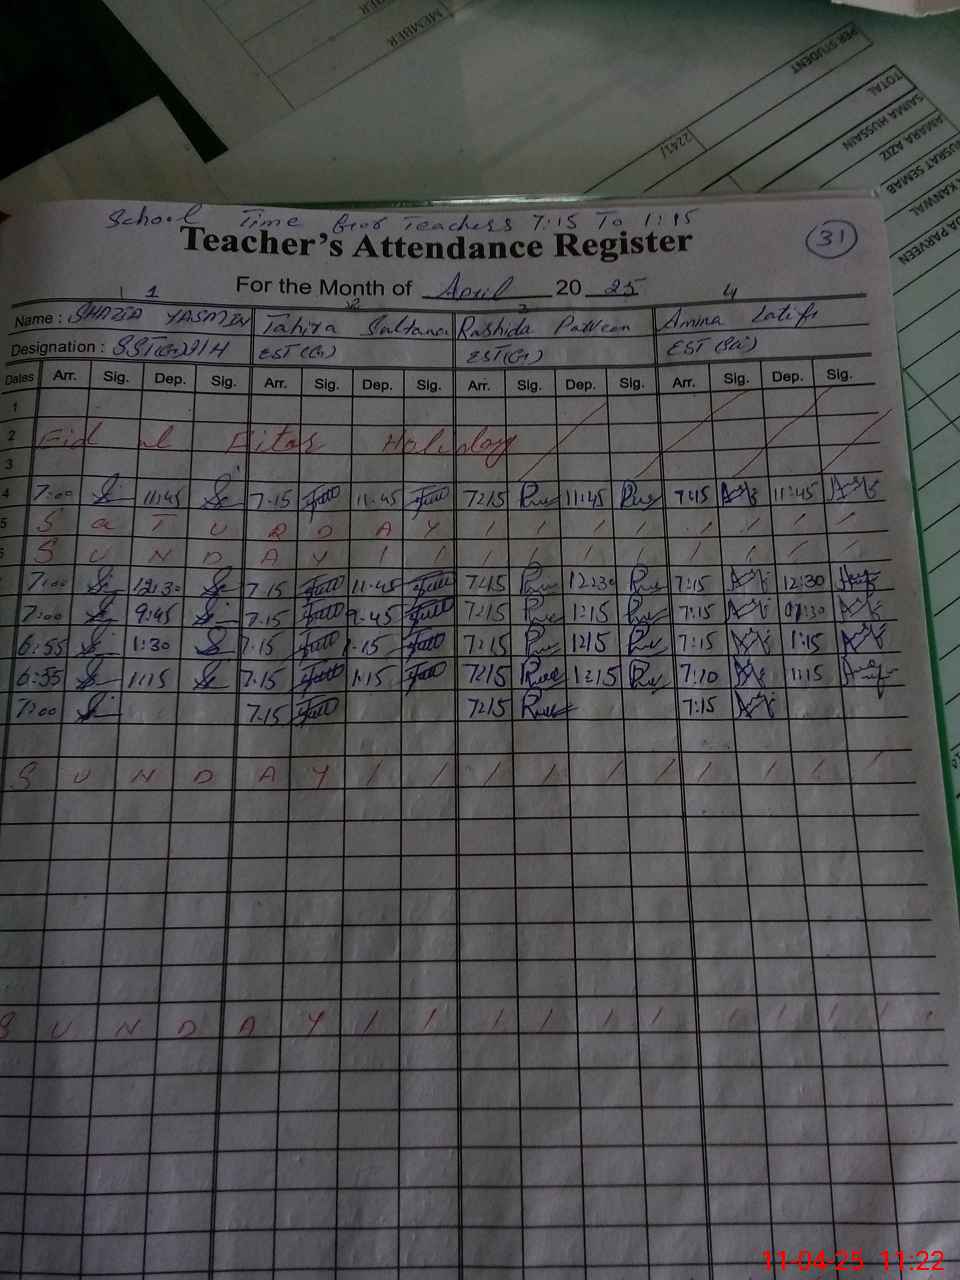 MEMBER
PER STUDENT
2241/
TOTAL
SAIMA HUSSAIN
AMARA AZIZ
USRAT SEMAB
KANWAL
PARVEEN
School Time for Teachers 7:15 To 1:15
Teacher's Attendance Register
31
For the Month of April 20 25
1 2 3 4
Name : SHAZIA YASMIN Tahira Sultana Rashida Parveen Amina Latif
Designation : SST(G)/IH EST(G) EST(G) EST(Sci)
Dates Arr. Sig. Dep. Sig. Arr. Sig. Dep. Sig. Arr. Sig. Dep. Sig. Arr. Sig. Dep. Sig.
1
2 Eid ul Fitar Holiday
3
4 7:00 11:45 7:15 11:45 7:15 11:45 7:15 11:45
5 S a T U R D A Y
S U N D A Y
7:00 12:30 7.15 11.45 7:15 12:30 7:15 12:30
7:00 9:45 7.15 9.45 7:15 1:15 7:15
6:55 1:30 7.15 1.15 7:15 1:15 7:15 1:15
6:55 1:15 7.15 1.15 7:15 1:15 7:10 1:15
7:00 7.15 7:15 7:15
S U N D A Y
S U N D A Y
11-04-25 11:22